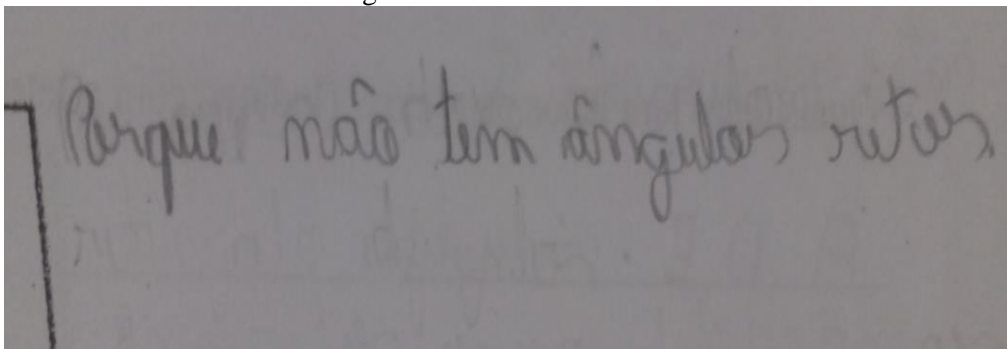 Porque não tem ângulos retos.